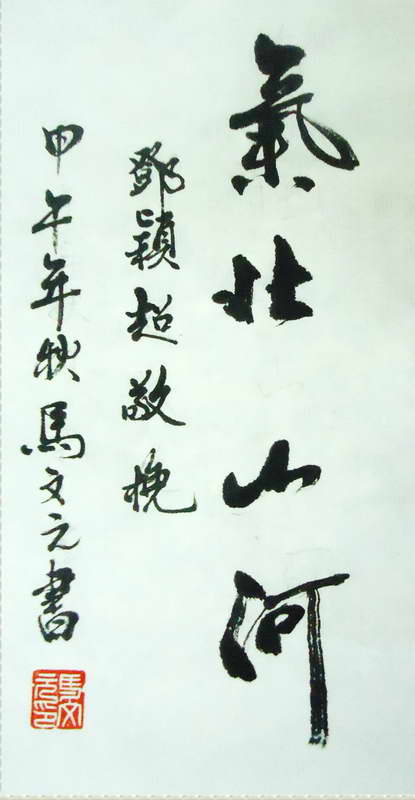 氣壮山河
鄧穎超敬挽
甲午年秋馬文元書
馬文元印